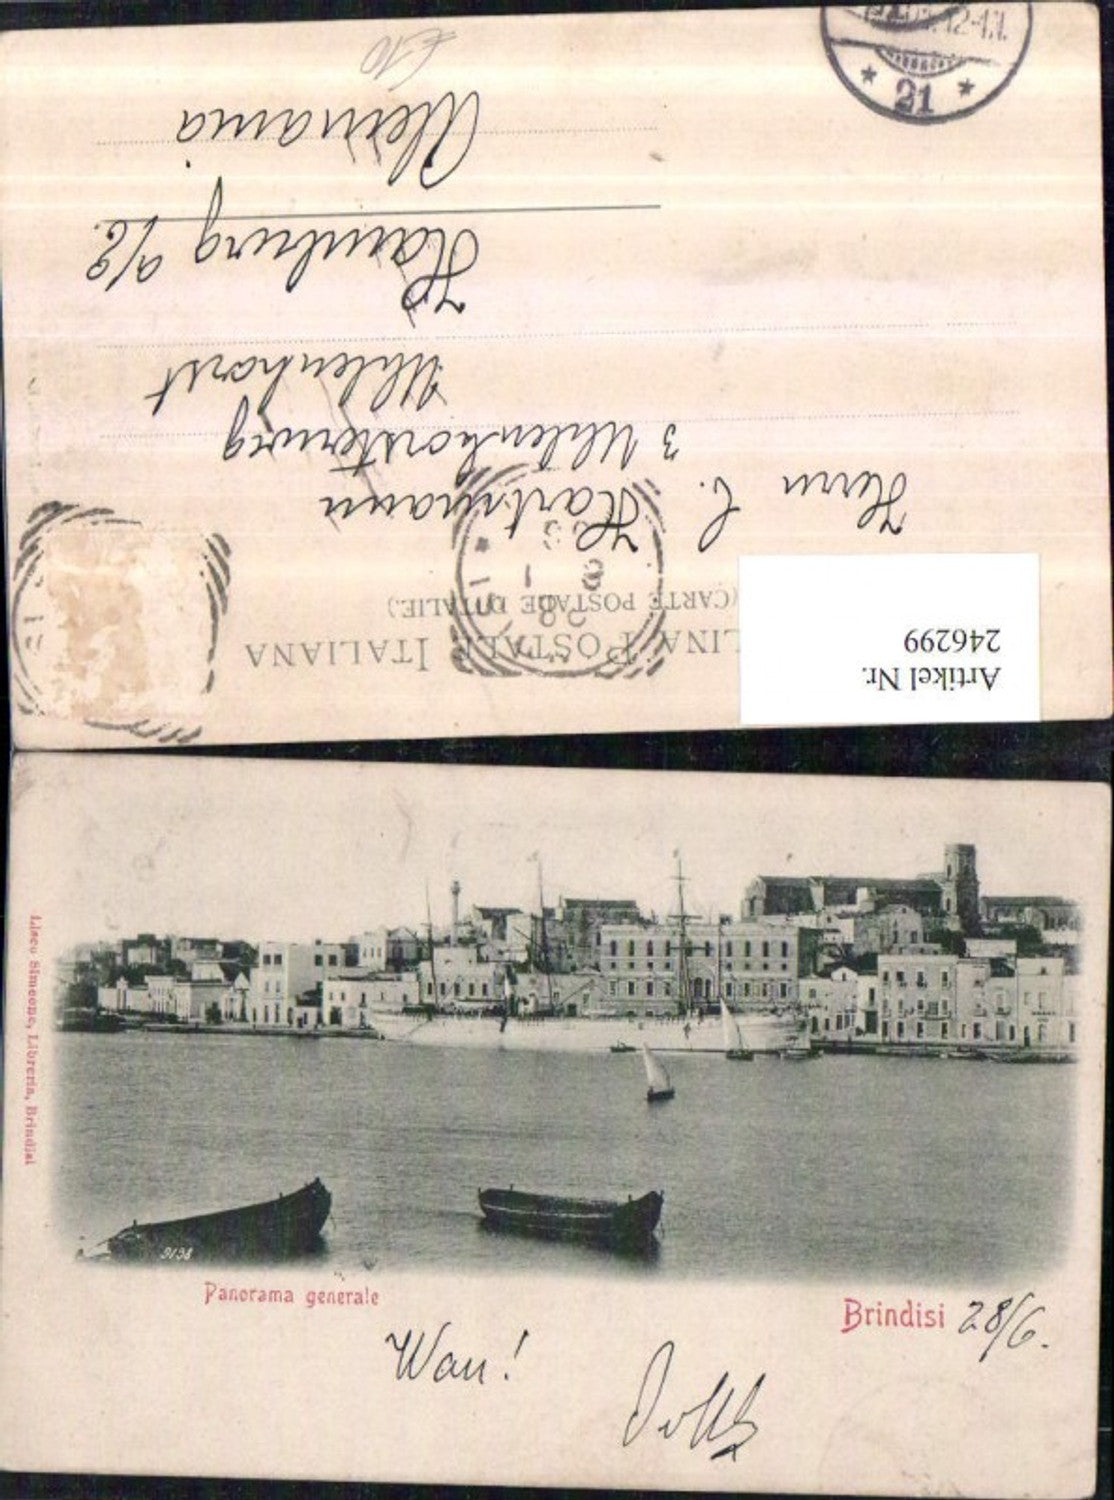 Artikel Nr.
246299
LINA POSTALE ITALIANA
(CARTE POSTALE D'ITALIE.)
Herrn C. Hartmann
3 Uhlenhorsterweg
Uhlenhorst
Hamburg a/E.
Alemania
£10
21
Lisco Simeone, Libreria, Brindisi
9198
Panorama generale
Brindisi 28/6.